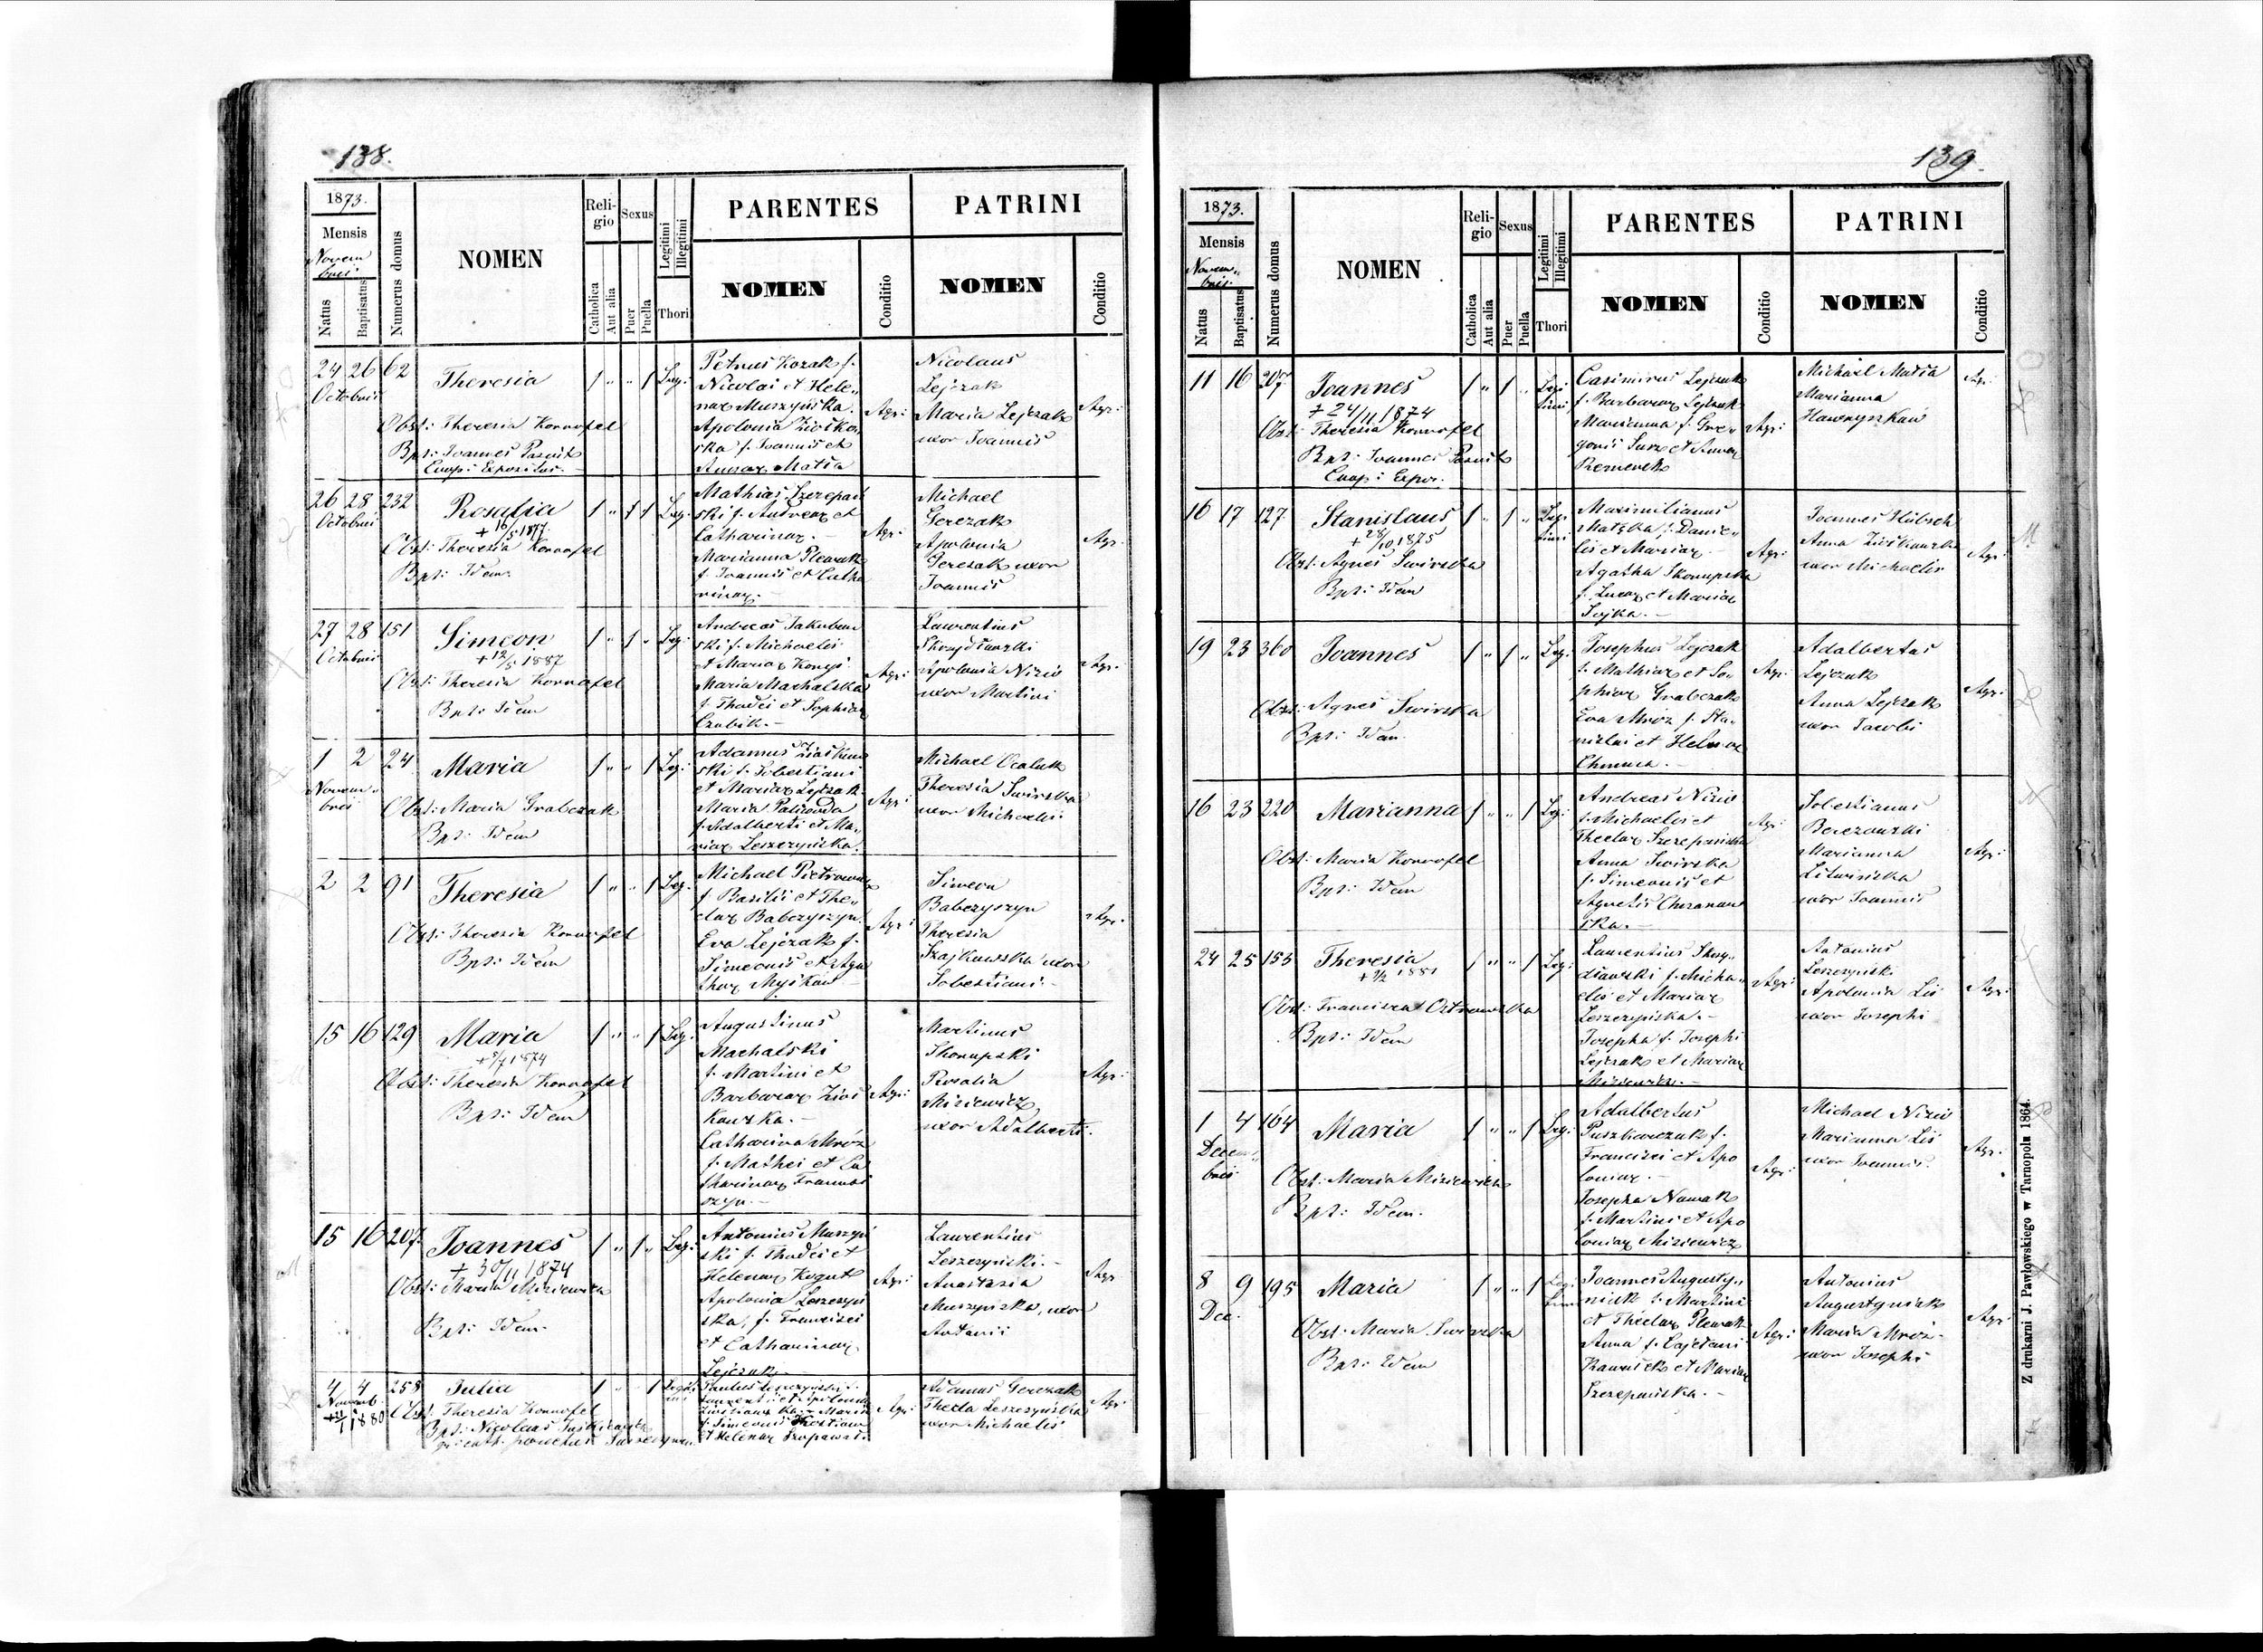 138.
1873.
Mensis
Novem
bris
Natus
Baptisatus
Numerus domus
NOMEN
Reli-
gio
Catholica
Aut alia
Sexus
Puer
Puella
Legitimi
Illegitimi
Thori
PARENTES
NOMEN
Conditio
PATRINI
NOMEN
Conditio
24 26 62
Octobris
Theresia
Leg:
Obst: Theresia Kornafel
Bpt: Joannes
Coop: Expositus.
Petrus Kozak f.
Nicolai et Hele-
nae Muszyńska.
Apolonia
ska f. Joannis et
Annae Matla
Agr:
Nicolaus
Lejczak
Maria Lejczak
uxor Joannis
Agr:
26 28 232
Octobris
Rosalia
+ 16/5 1877
Leg.
Obst: Theresia Kornafel
Bpt: Idem
Mathias Szczepań
ski f. Andreae et
Catharinae.
Marianna Plewak
f. Joannis et Catha
rinae.
Agr:
Michael
Gerczak
Apolonia
Gerczak uxor
Joannis
Agr.
27 28 151
Octobris
Simeon
+ 12/5 1887
Leg:
Obst: Theresia Kornafel
Bpt: Idem
Andreas Jakubow
ski f. Michaelis
et Mariae
Maria Machalska
f. Thadei et Sophiae
Czubik.
Agr:
Laurentius
Apolonia Nizio
uxor Martini
Agr.
1 2 24
Novem
bris
Maria
Leg:
Obst: Maria Grabczak
Bpt: Idem
Adamus
ski f. Sobestiani
et Mariae Lejczak
Maria
f. Adalberti et Ma,
riae Leszczyńska.
Agr:
Michael
Theresia Swirska
uxor Michaelis
2 2 91
Theresia
Leg.
Obst: Theresia Kornafel
Bpt: Idem
Michael
f. Basilii et The,,
clae Babczyszyn.
Eva Lejczak f.
Simeonis et Aga
thae
Agr:
Simeon
Babczyszyn
Theresia
Szajkowska uxor
Sobestiani.
Agr.
15 16 129
Maria
Leg.
Obst: Theresia Kornafel
Bpt: Idem
Augustinus
Machalski
f. Martini et
Barbarae
Catharina Mróz
f. Mathei et Ca
tharinae
Agr:
Martinus
Skorupski
Rosalia
Misiewicz
uxor Adalberti.
Agr:
15 16 207
Joannes
+ 30/11 1874
Leg:
Obst: Maria Misiewicz
Bpt: Idem
Antonius Muszyń
ski f. Thadei et
Helenae Kogut
Apolonia Leszczyń
ska, f. Francisci
et Catharinae
Lejczak
Agr:
Laurentius
Leszczyński.
Anastasia
Muszyńska, uxor
Antonii
Agr
4 4 258
Novemb.
1880
Julia
Obst: Theresia Kornafel
Bpt: Nicolaus
Agr:
Adamus Gerczak
Thecla Leszczyńska
uxor Michaelis
Agr:
139.
1873.
Mensis
Novem,,
bris
Natus
Baptisatus
Numerus domus
NOMEN
Reli-
gio
Catholica
Aut alia
Sexus
Puer
Puella
Legitimi
Illegitimi
Thori
PARENTES
NOMEN
Conditio
PATRINI
NOMEN
Conditio
11 16 207
Joannes
+ 24/11 1874
Legi
timi
Obst: Theresia Kornafel
Bpt: Joannes
Coop: Expos.
Casimirus Lejczak
f. Barbarae Lejczak
Marianna f. Gre,,
gorii et Annae
Agr:
Michael Matla
Marianna
Agr:
16 17 127
Stanislaus
+ 28/10 1875
Legi
timi
Obst: Agnes Swirska
Bpt: Idem
Maximilianus
f. Danie,,
lis et Mariae.
Agatha Skorupska
f. Lucae et Mariae
Sojka.
Agr:
Joannes Hübsch
Anna
uxor Michaelis
Agr:
19 23 360
Joannes
Leg:
Obst: Agnes Swirska
Bpt: Idem.
Josephus Lejczak
f. Mathiae et So,,
phiae Grabczak
Eva Mroz f. Sta,
nislai et Helenae
Agr:
Adalbertus
Lejczak
Anna Lejczak
uxor Jacobi
Agr:
16 23 220
Marianna
Leg:
Obst: Maria Kornafel
Bpt: Idem
Andreas Nizio
f. Michaelis et
Theclae Szczepańska
Anna Swirska
f. Simeonis et
Agnetis Chrzanow
ska.
Agr:
Sobestianus
Berezowski
Marianna
Litwińska
uxor Joannis
Agr:
24 25 153
Theresia
Leg:
Obst: Francisca Ostrowska
Bpt: Idem
Laurentius
f. Micha,,
elis et Mariae
Leszczyńska.
Josepha f. Josephi
Lejczak et Mariae
Misiewicz.
Agr:
Antonius
Leszczyński
Apolonia Liś
uxor Josephi
Agr:
1 4 164
Decem
bris
Maria
Leg:
Obst: Maria Misiewicz
Bpt: Idem.
Adalbertus
Puszkarczuk f.
Francisci et Apo
loniae.
Josepha Nowak
f. Martini et Apo
loniae Misiewicz
Agr:
Michael Nizio
Marianna Liś
uxor Joannis.
Agr.
8 9 195
Dec.
Maria
Legi
timi
Obst: Maria Swirska
Bpt: Idem
Joannes Augusty,,
niak f. Martini
et Theclae Plewak
Anna f. Cajetani
et Mariae
Szczepańska.
Agr:
Antonius
Augustyniak
Maria Mróz
uxor Josephi
Agr:
Z drukarni J. Pawłowskiego w Tarnopolu 1864.